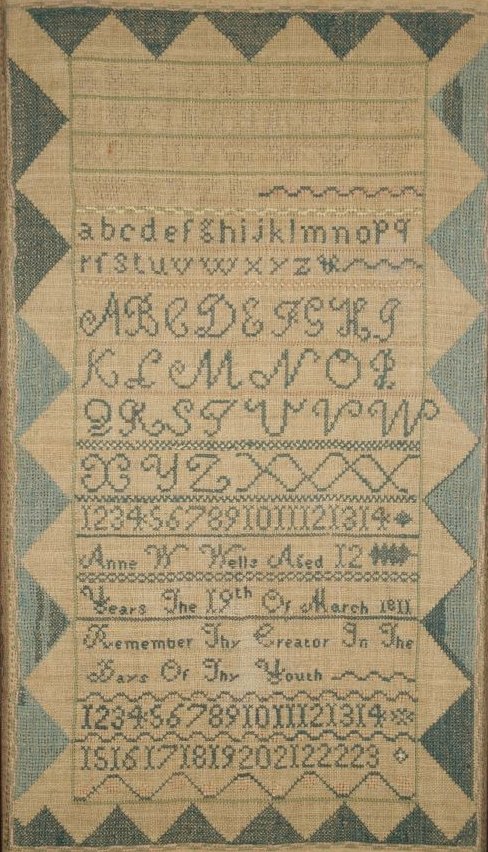 abcdefghijklmnopq
rſstuvwxyz
ABCDEFGHI
KLMNOP
QRSTUVW
XYZ
1234567891011121314
Anne W Wells Aged 12
Years The 19th Of March 1811
Remember Thy Creator In The
Days Of Thy Youth
1234567891011121314
151617181920212223